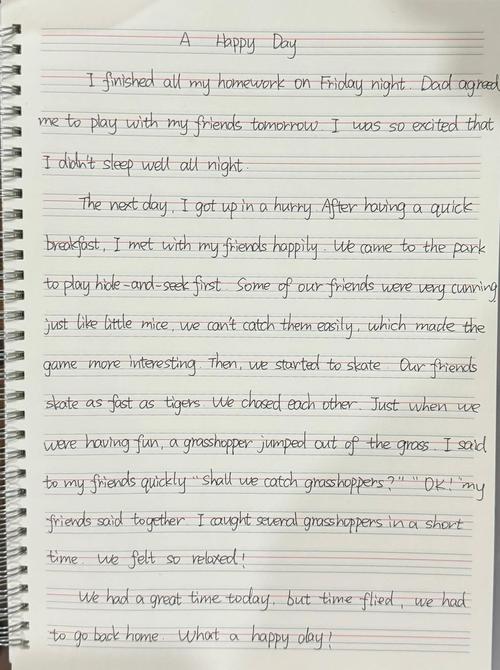 A Happy Day
I finished all my homework on Friday night. Dad agreed
me to play with my friends tomorrow. I was so excited that
I didn't sleep well all night.
The next day, I got up in a hurry. After having a quick
breakfast, I met with my friends happily. We came to the park
to play hide-and-seek first. Some of our friends were very cunning
just like little mice, we can't catch them easily, which made the
game more interesting. Then, we started to skate. Our friends
skate as fast as tigers. We chased each other. Just when we
were having fun, a grasshopper jumped out of the grass. I said
to my friends quickly "shall we catch grasshoppers?" "OK!" my
friends said together. I caught several grasshoppers in a short
time. We felt so relaxed!
We had a great time today, but time flied, we had
to go back home. What a happy day!